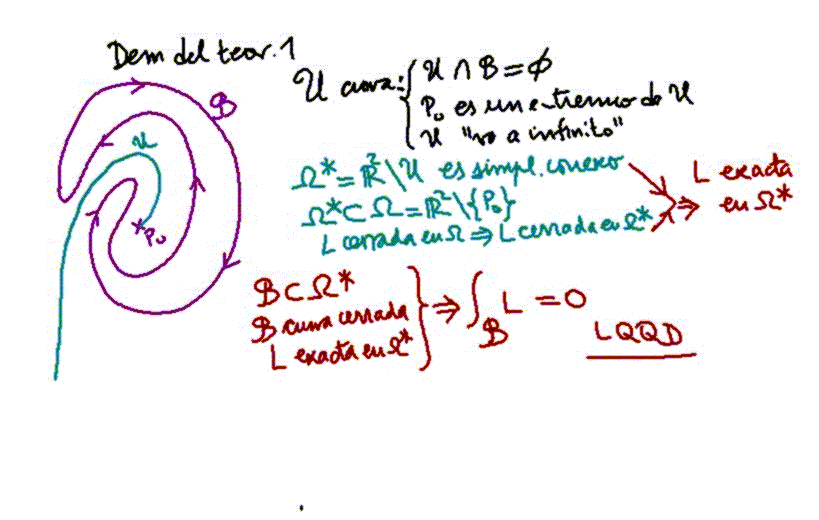 Dem del teor. 1
B
U
P₀
U curva: { U ∩ B = ∅
P₀ es un extremo de U
U "va a infinito"
Ω* = ℝ² \ U es simpl. conexo
Ω* ⊂ Ω = ℝ² \ {P₀}
L cerrada en Ω ⇒ L cerrada en Ω*
⇒ L exacta
en Ω*
B ⊂ Ω*
B curva cerrada
L exacta en Ω*
} ⇒ ∫_B L = 0
LQQD